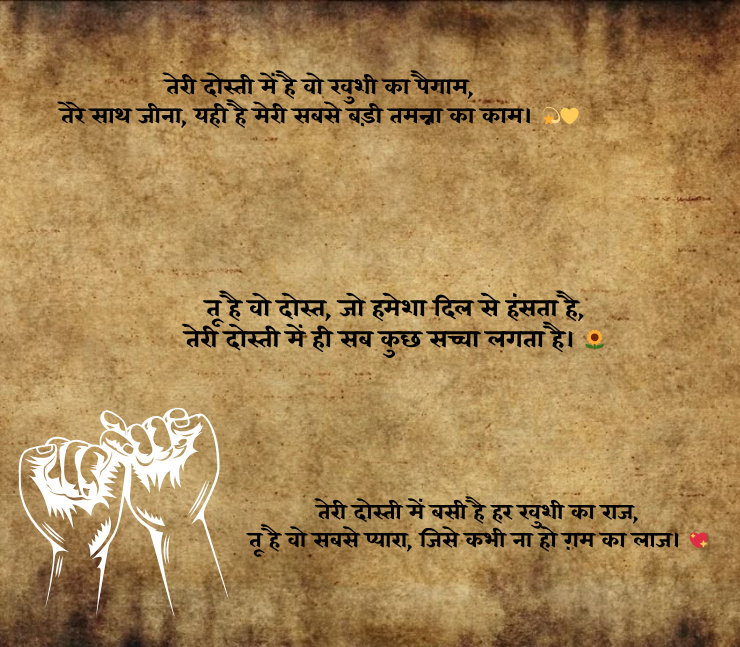 तेरी दोस्ती में है वो खुशी का पैगाम,
तेरे साथ जीना, यही है मेरी सबसे बड़ी तमन्ना का काम। 💫💛
तू है वो दोस्त, जो हमेशा दिल से हंसता है,
तेरी दोस्ती में ही सब कुछ सच्चा लगता है। 🌻
तेरी दोस्ती में बसी है हर खुशी का राज,
तू है वो सबसे प्यारा, जिसे कभी ना हो ग़म का लाज। 💖